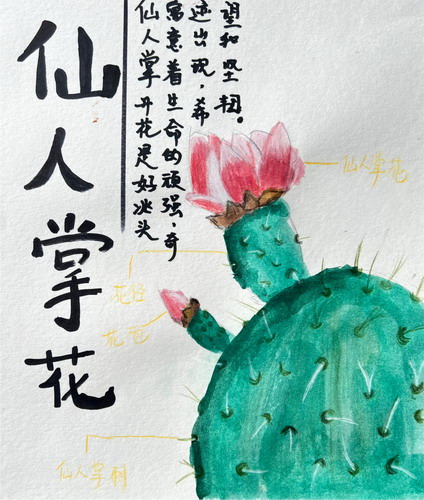 仙人掌花
仙人掌开花是好兆头
寓意着生命的顽强,奇
迹出现,希
望和坚韧。
仙人掌花
花苞
仙人掌刺